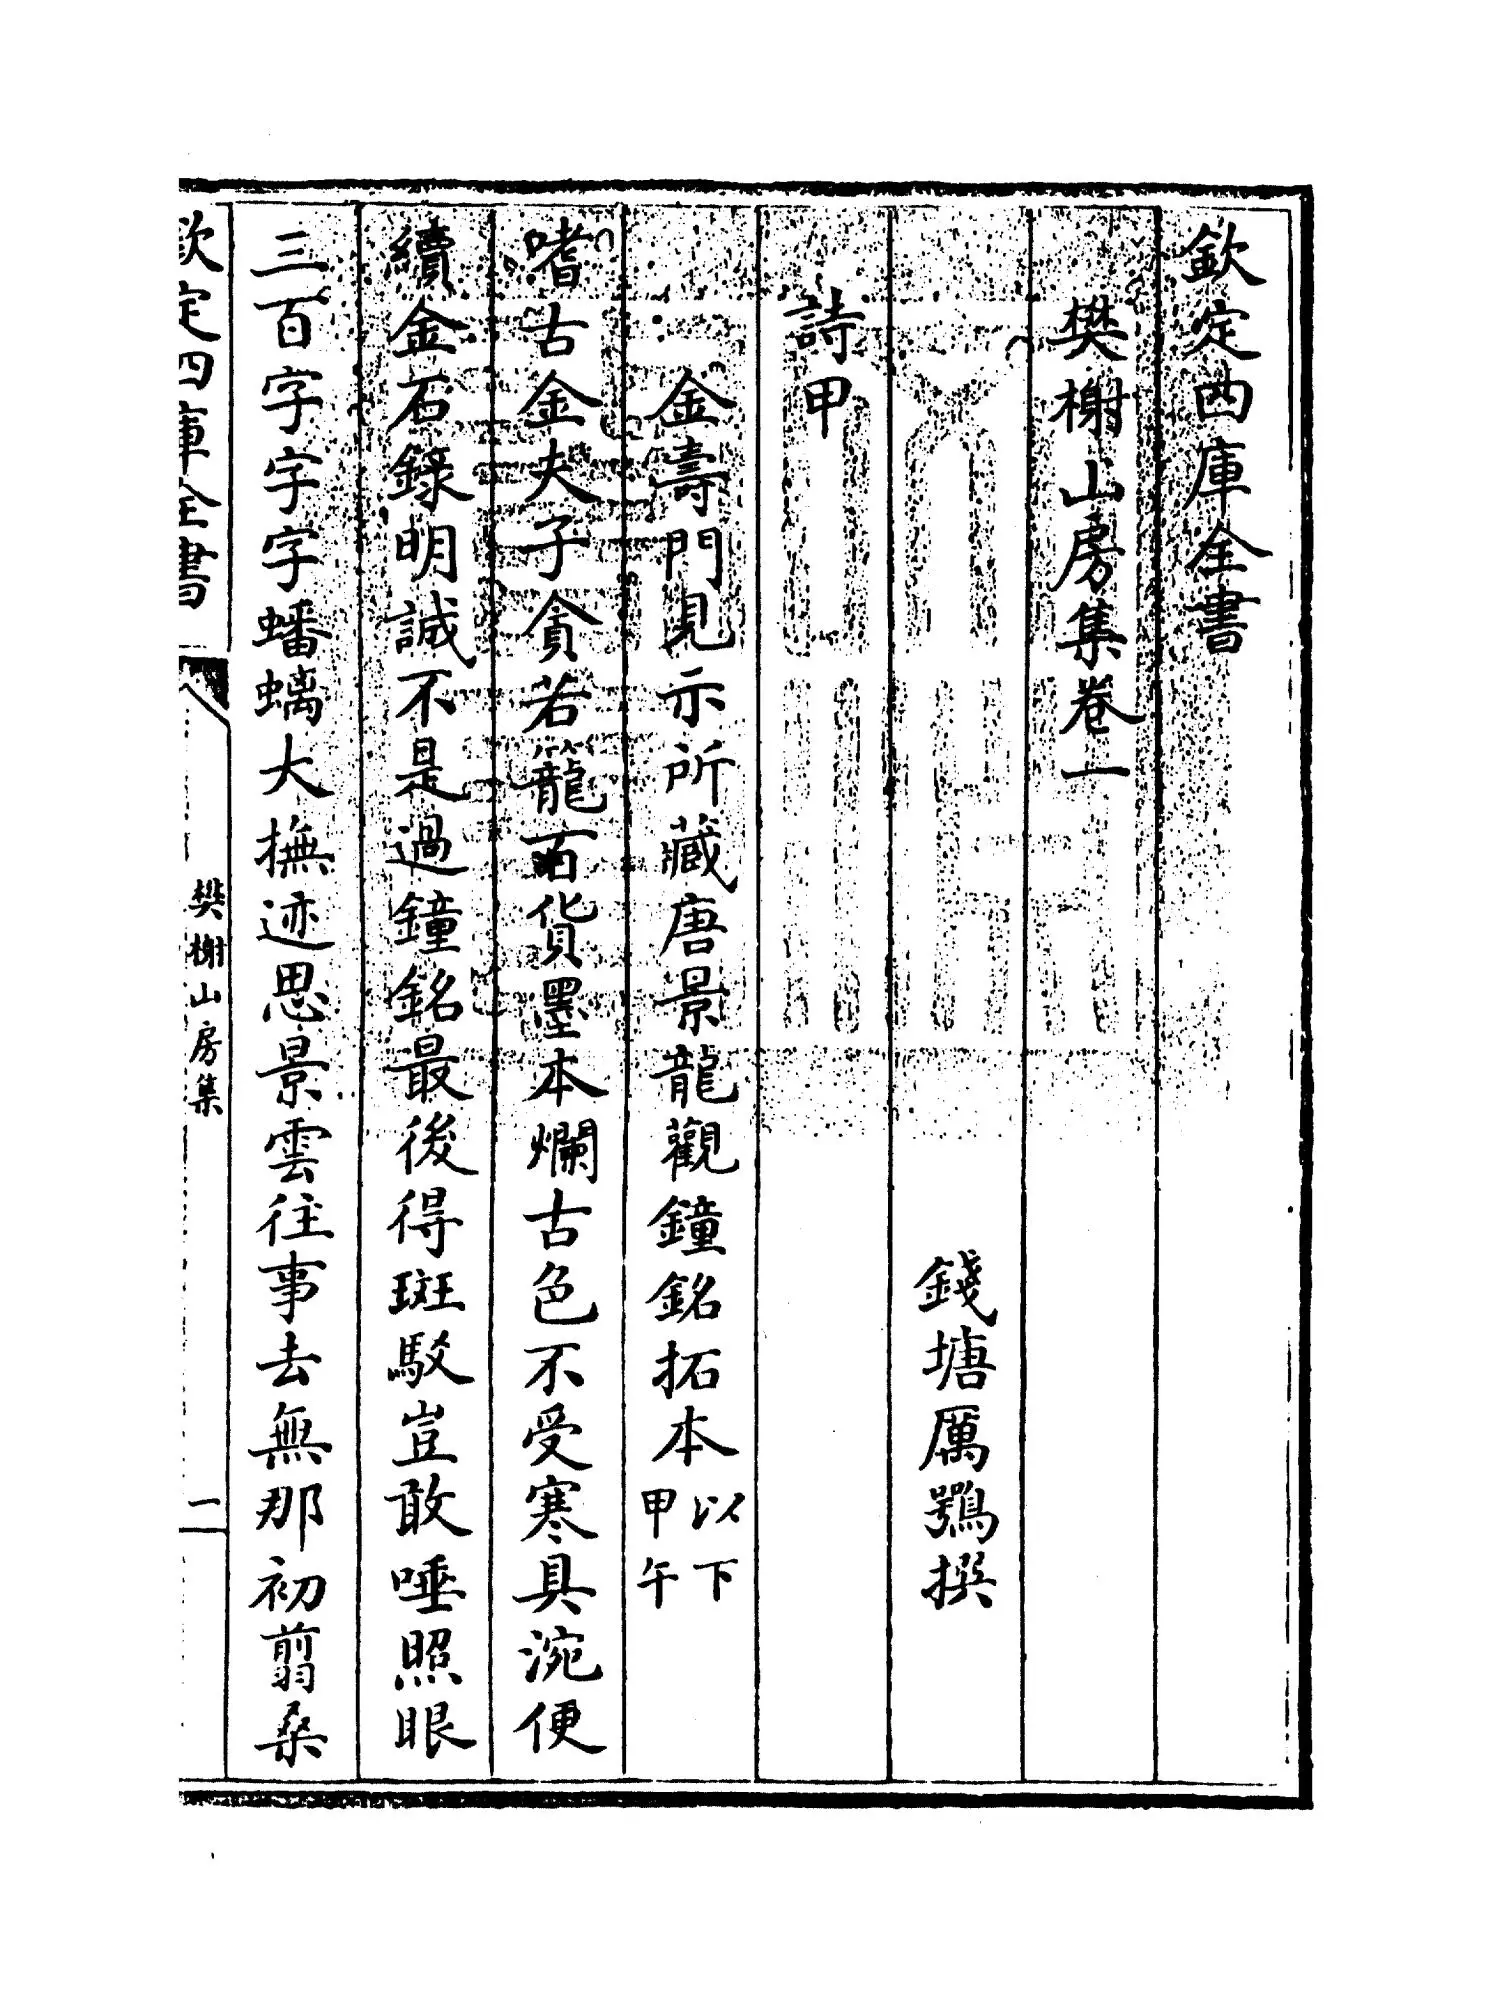 欽定四庫全書
樊榭山房集卷一
錢塘厲鶚撰
詩甲
金壽門見示所藏唐景龍觀鐘銘拓本以下甲午
嗜古金夫子貪若籠百貨墨本爛古色不受寒具涴便
續金石錄明誠不是過鐘銘最後得斑駁豈敢唾照眼
三百字字字蟠螭大撫迹思景雲往事去無那初翦桑
欽定四庫全書
樊榭山房集
一